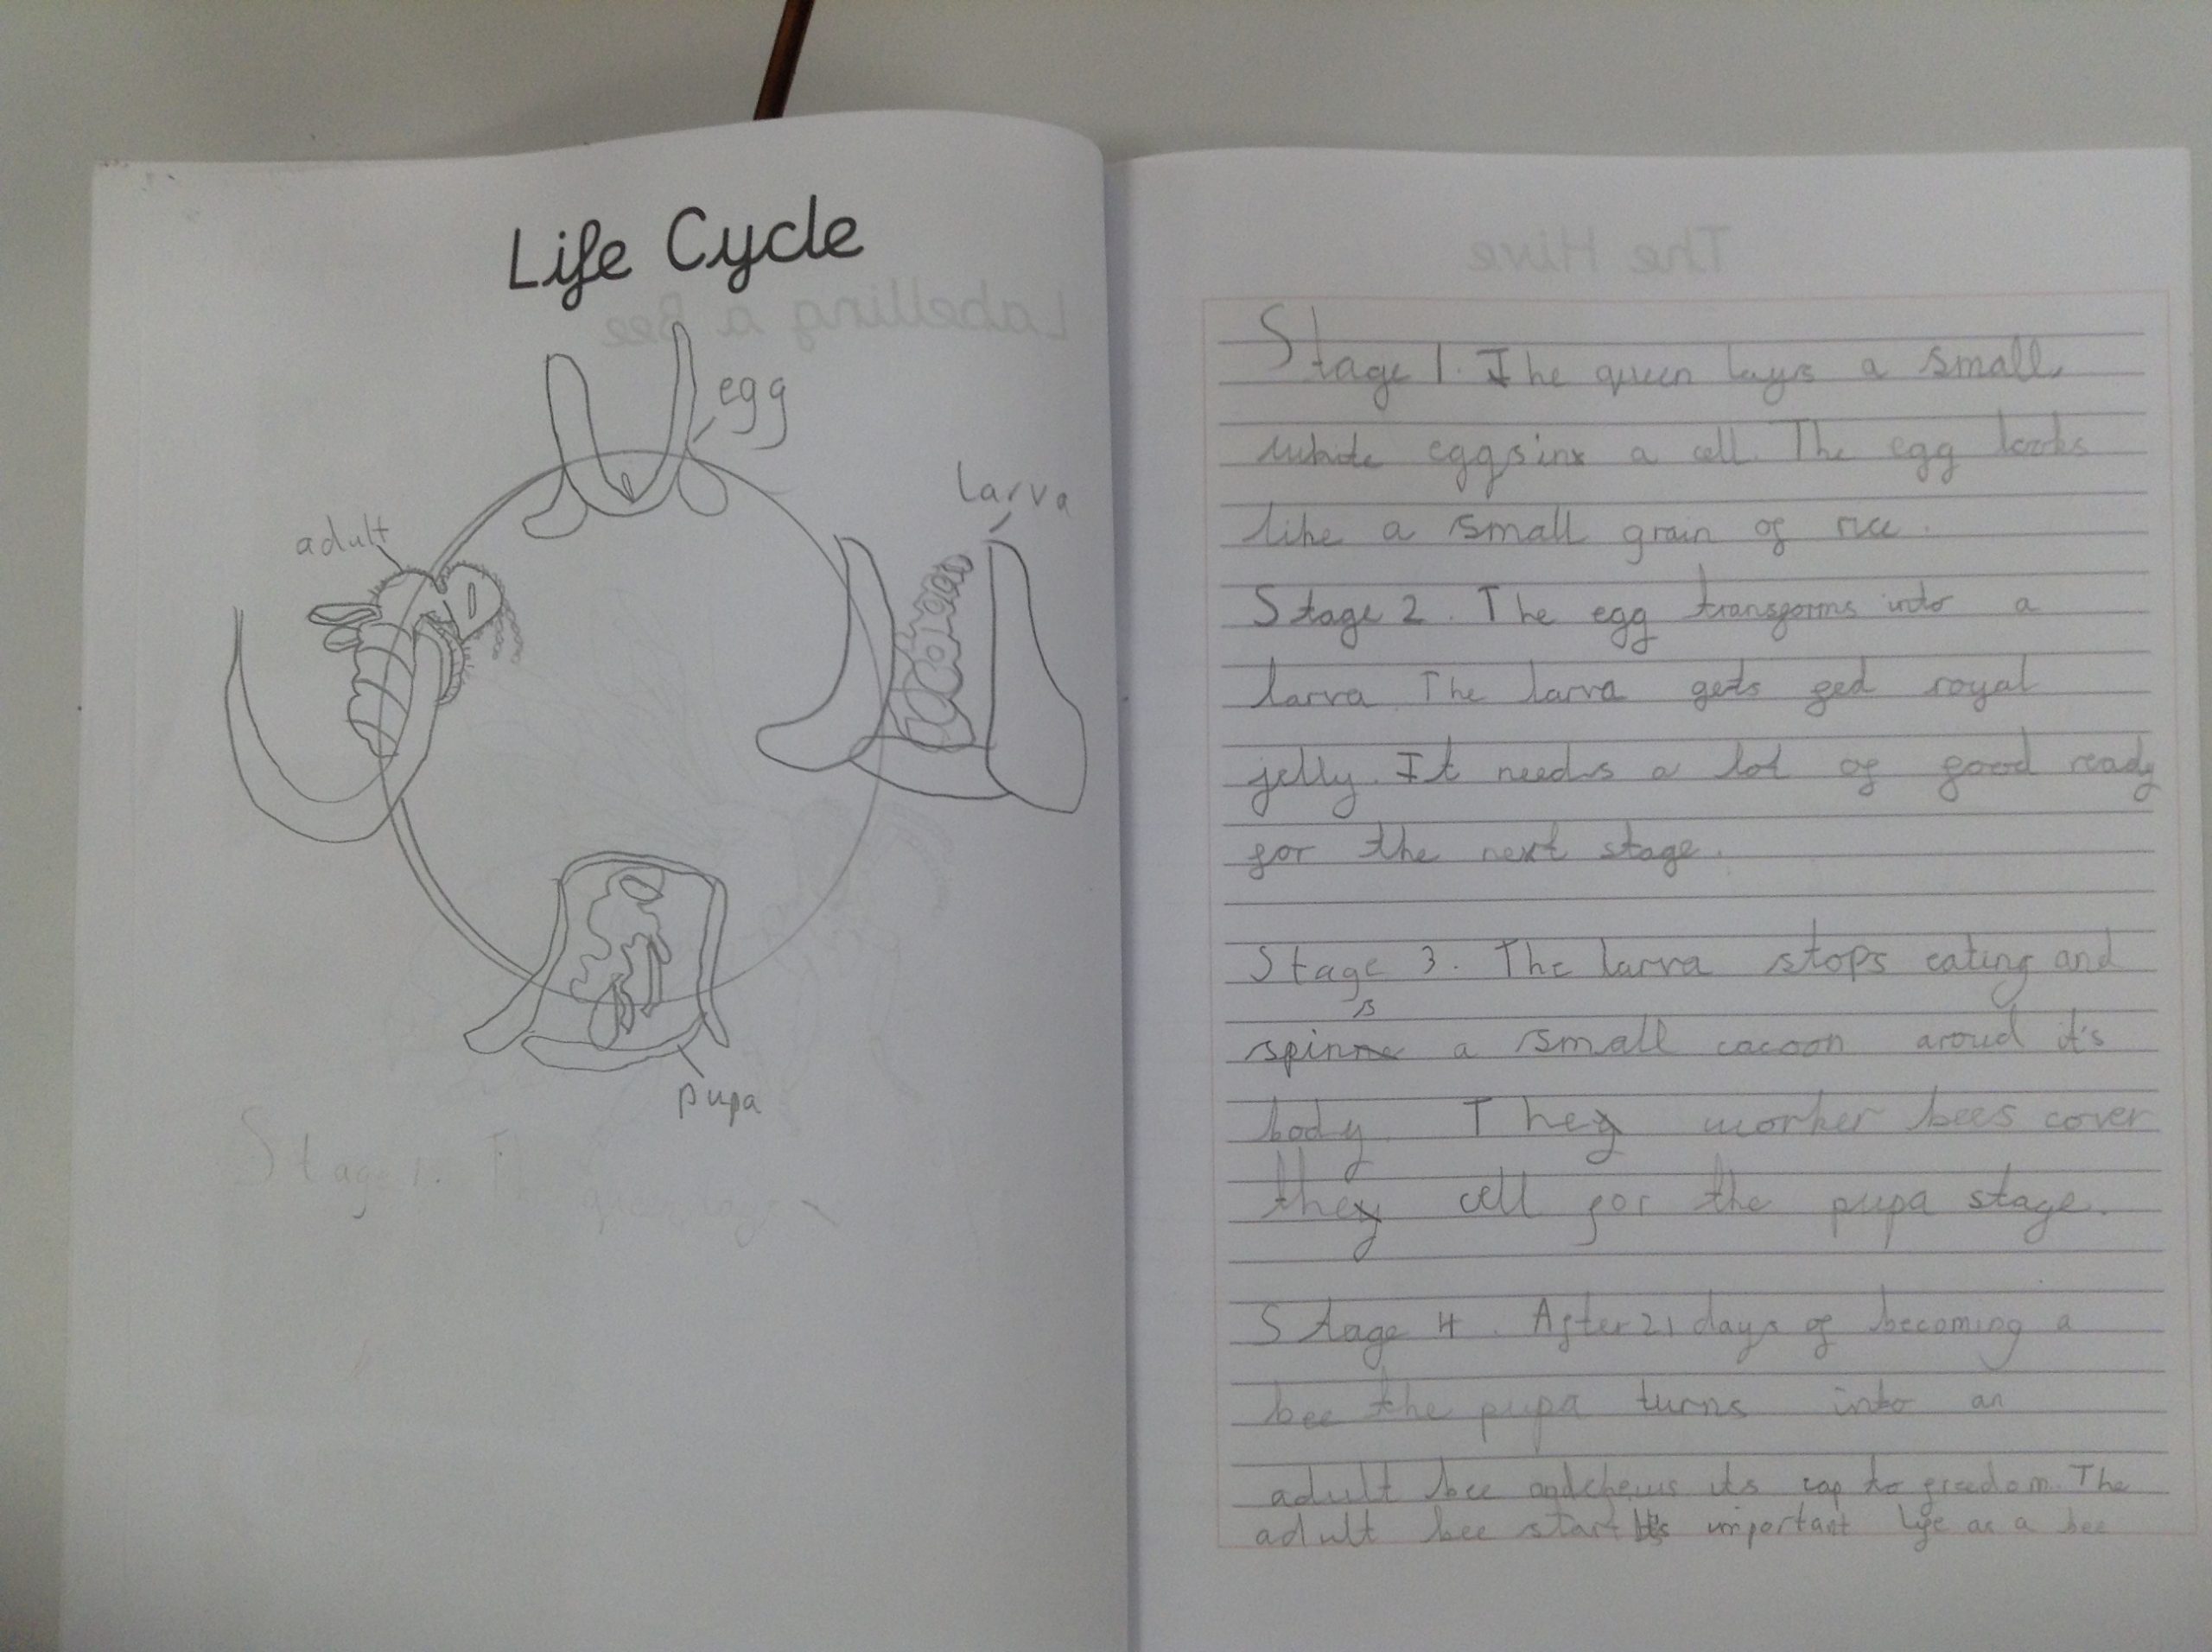 Life Cycle
Labelling a Bee
egg
larva
adult
pupa
Stage 1. The queen lays
The Hive
Stage 1. The queen lays a small
white eggs in a cell. The egg looks
like a small grain of rice.
Stage 2. The egg transforms into a
larva. The larva gets fed royal
jelly. It needs a lot of food ready
for the next stage.
Stage 3. The larva stops eating and
spins a small cacoon aroud it's
body. The worker bees cover
the cell for the pupa stage.
Stage 4. After 21 days of becoming a
bee the pupa turns into an
adult bee and chews its cap to freedom. The
adult bee start it's important life as a bee